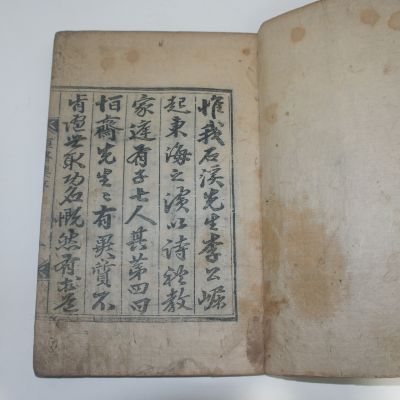 惟我石溪先生李公崛
起東海之濱以詩禮敎
家庭有子七人其第四曰
恒齋先生〻有異質不
肯隨世取功名慨然有志